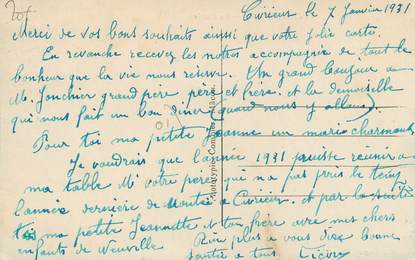 Civrieux le 7 Janvier 1931
Merci de vos bons souhaits ainsi que votre jolie carte.
En revanche recevez les notres accompagnie de tout le
bonheur que la vie nous reserve. Un grand bonjour a
M. Jonchier grand pere pere et frere. et la demoiselle
qui nous fait un bon diner (quand nous y allons)
Pour toi ma petite Jeanne un mari charmant
Je voudrais que l'année 1931 puisse reunir a
ma table Mr votre pere qui n'a pas pris le temps
l'année derniere de Monter a Civrieux. et par la suite
toi ma petite Jeannette et ton frere avec mes chers
enfants de Neuville Rien plus a vous dire bonne
santé a tous
Phototypie Combier Mâcon